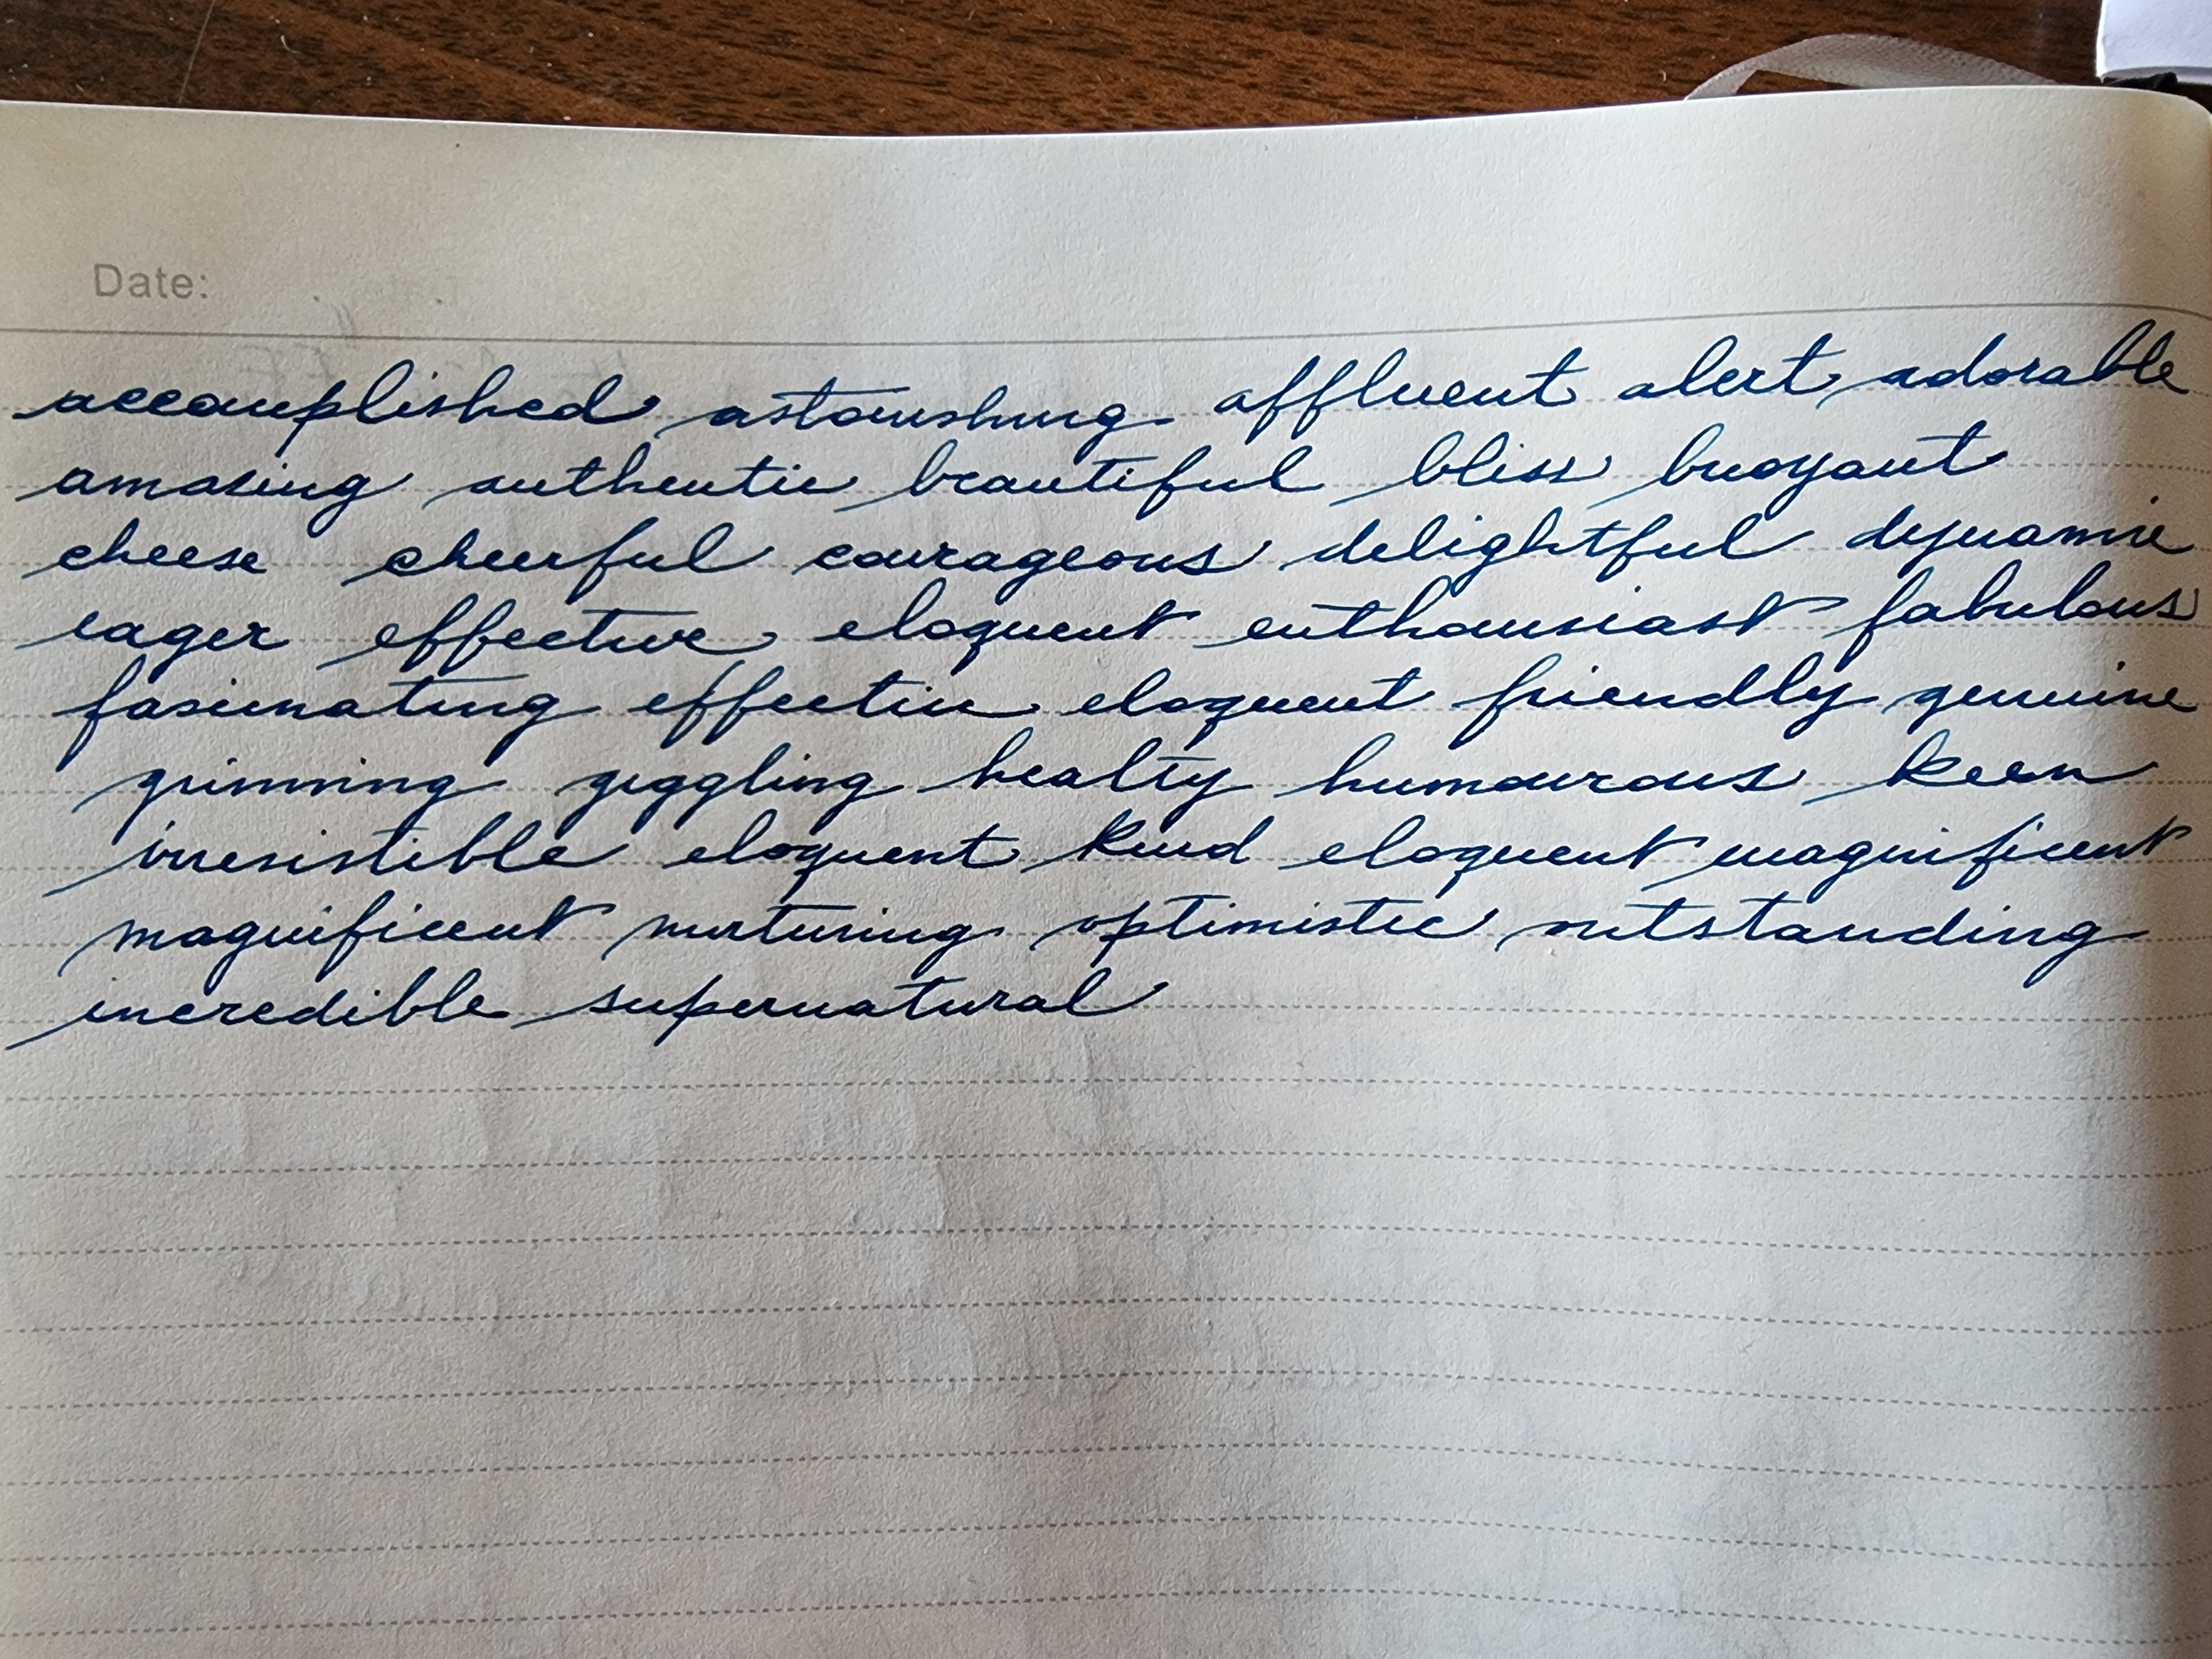 Date:
accomplished astonishing affluent alert adorable
amazing authentic beautiful bliss buoyant
cheese cheerful courageous delightful dynamic
eager effective eloquent enthousiast fabulous
fascinating effective eloquent friendly genuine
grinning giggling healty humourous keen
irresistible eloquent kind eloquent magnificent
magnificent nurturing optimistic outstanding
incredible supernatural